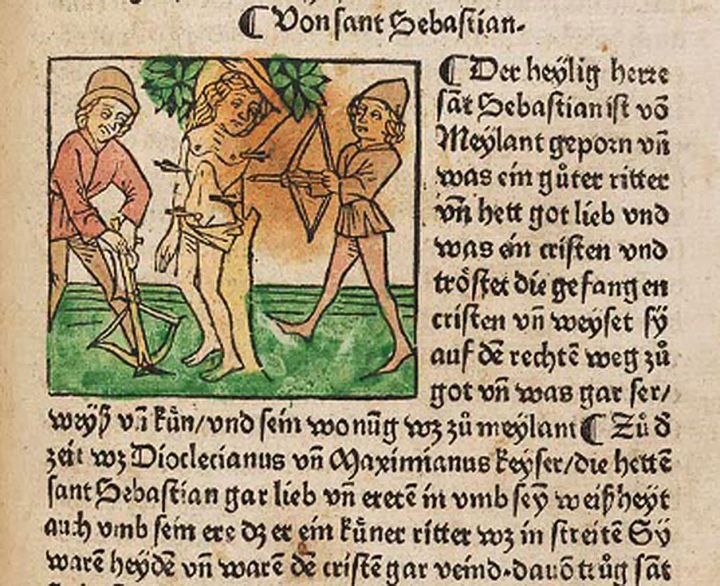 ¶ Von sant Sebastian.
¶ Der heÿlig herre
sāt Sebastian ist vō
Meÿlant geporn vñ
was ein gůter ritter
vñ hett got lieb vnd
was ein cristen vnd
tröstet die gefangen
cristen vñ weÿset sÿ
auf dē rechtē weg zů
got vñ was gar ser/
weÿß vñ kůn/vnd sein wonūg wz zů meÿlant ¶ Zů d
zeit wz Dioclecianus vñ Maximianus keÿser/die hettē
sant Sebastian gar lieb vñ eretē in vmb seÿ weißheÿt
auch vmb sein ere dz er ein kůner ritter wz in streitē Sÿ
warē heÿdē vñ warē dē cristē gar veind. dauō trůg sāt